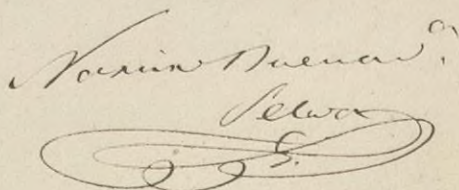 Narciso Buenav.ª
Selva